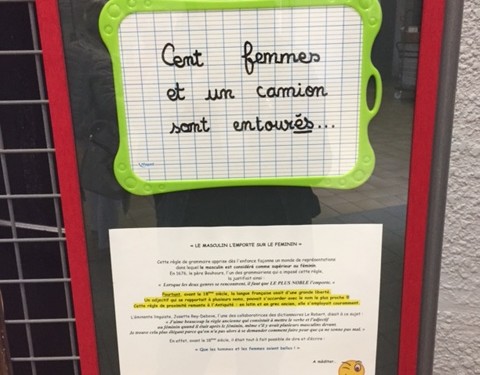 Cent femmes
et un camion
sont entourés...
« LE MASCULIN L'EMPORTE SUR LE FEMININ »
Cette règle de grammaire apprise dès l'enfance façonne un monde de représentations
dans lequel le masculin est considéré comme supérieur au féminin.
En 1676, le père Bouhours, l'un des grammairiens qui a imposé cette règle,
la justifiait ainsi :
« Lorsque les deux genres se rencontrent, il faut que LE PLUS NOBLE l'emporte. »
Pourtant, avant le 18ème siècle, la langue française usait d'une grande liberté.
Un adjectif qui se rapportait à plusieurs noms, pouvait s'accorder avec le nom le plus proche !!
Cette règle de proximité remonte à l'Antiquité : en latin et en grec ancien, elle s'employait couramment.
L'éminente linguiste, Josette Rey-Debove, l'une des collaboratrices des dictionnaires Le Robert, disait à ce sujet :
« J'aime beaucoup la règle ancienne qui consistait à mettre le verbe et l'adjectif
au féminin quand il était après le féminin, même s'il y avait plusieurs masculins devant.
Je trouve cela plus élégant parce qu'on n'a pas alors à se demander comment faire pour que ça ne sonne pas mal. »
En effet, avant le 18ème siècle, il était tout à fait possible de dire et d'écrire :
« Que les hommes et les femmes soient belles ! »
A méditer.